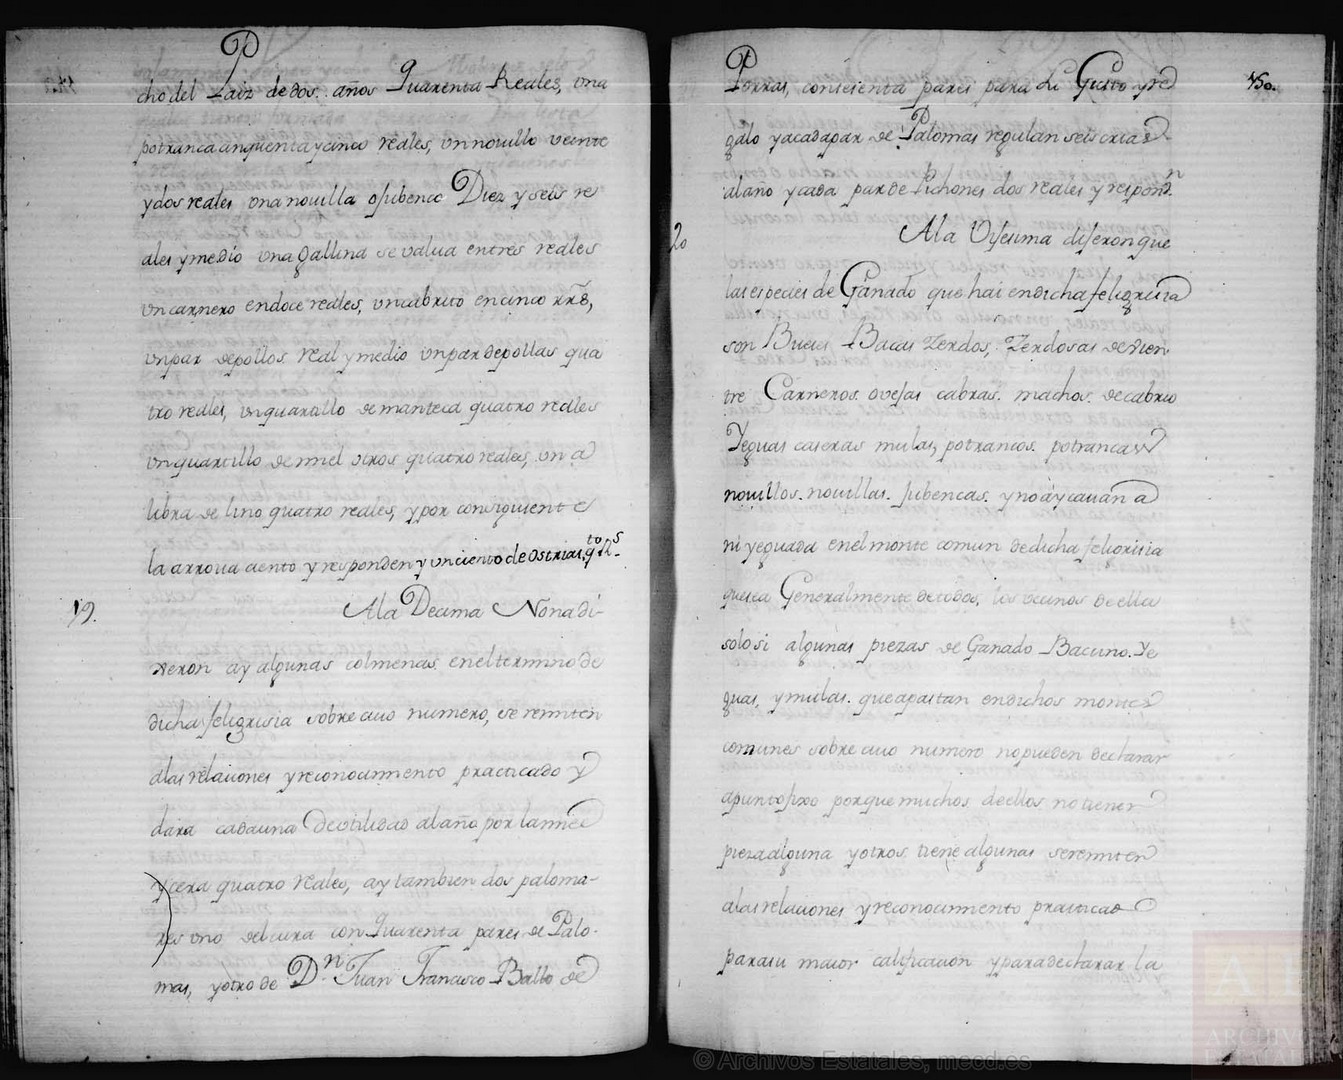 cho del Paiz de dos años Quarenta Reales, Una
potranca cinquenta y cinco reales, un novillo veinte
y dos reales una novilla o Jubenca Diez y seis re
ales y medio una Gallina se valua entres reales
un carnero en doce reales, un cabrito en cinco rr.s,
un par de pollos real y medio un par de pollas qua
tro reales, un quartillo de manteca quatro reales
un quartillo de miel otros quatro reales, un a
libra de lino quatro reales, y por consiguiente
la arrova ciento y responden y un ciento de ostrias, q.to R.s
19. A la Decima Nona di-
xeron ay algunas colmenas en el termino de
dicha feligrisia sobre cuio numero, se remiten
a las relaciones y reconocimiento practicado y
dara cada una De utilidad al año por la miel
y cera quatro reales, ay tambien dos paloma-
res uno del cura con Quarenta pares de Palo-
mas, y otro de D.n Juan Francisco Ballo de
Porras, con sesenta pares para su Gusto y re 150.
galo y a cada par de Palomas regulan seis crias
al año y cada par de Pichones dos reales y respond.n
20 A la Visesima dijeron que
las especies de Ganado que hai en dicha feligrisia
son Bueies Bacas Zerdos, Zerdosas de vien
tre Carneros ovejas cabras machos de cabrio
Yeguas caseras mulas, potrancos potrancas
novillos. novillas. Jubencas. y no ay cavan a
ni yeguada en el monte comun de dicha feligrisia
que sea Generalmente de todos, los vecinos de ella
solo si algunas piezas de Ganado Bacuno. Ye
guas, y mulas. que apastan en dichos montes
comunes sobre cuio numero no pueden declarar
a punto fixo porque muchos de ellos no tienen
pieza alguna y otros tiene algunas se remiten
a las relaciones y reconocimiento practicado
para su maior calificacion y para declarar la
© Archivos Estatales, mecd.es
AE
ARCHIVOS
ESTATALES